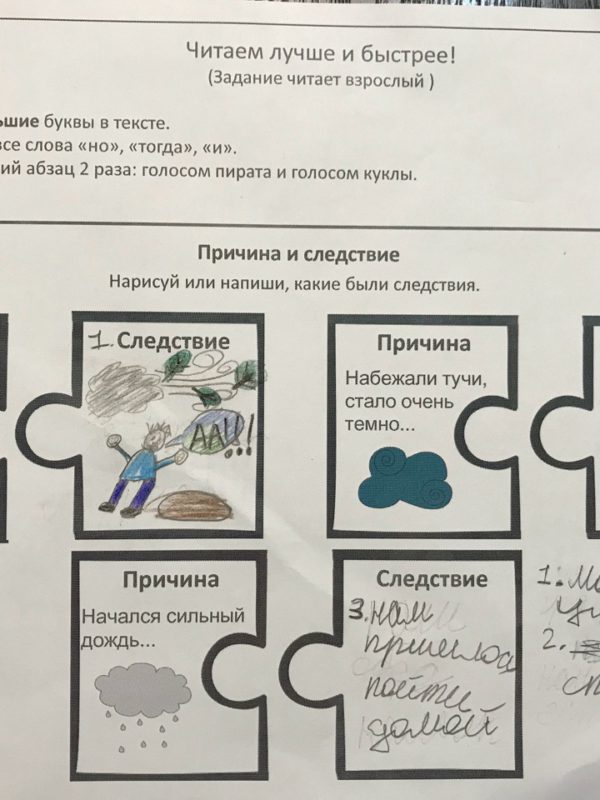 Читаем лучше и быстрее!
(Задание читает взрослый )
буквы в тексте.
все слова «но», «тогда», «и».
абзац 2 раза: голосом пирата и голосом куклы.
Причина и следствие
Нарисуй или напиши, какие были следствия.
1. Следствие
ААЦ!!!
Причина
Набежали тучи,
стало очень
темно...
Причина
Начался сильный
дождь...
Следствие
3. нам
пришлос
пойти
домой
1.
2.